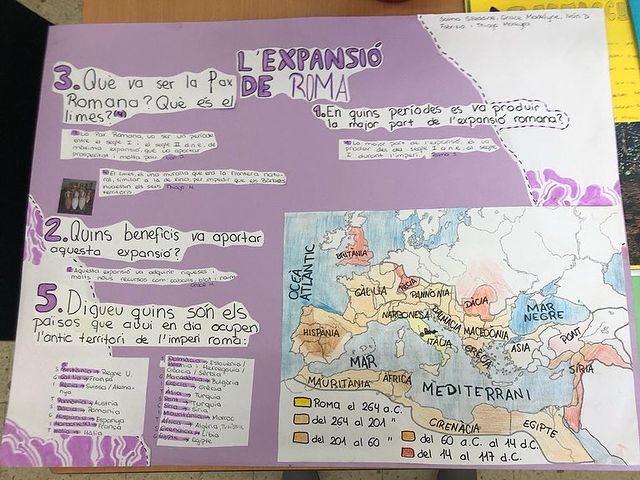 Fabrizio i Thiago
L'EXPANSIÓ
DE ROMA
3. Què va ser la Pax
Romana? Què és el
limes?
La Pax Romana, va ser un període
entre el segle I i el segle II d.n.e. de
màxima expansió, que va aportar
prosperitat i molta pau.
El limes, és una muralla que era la frontera natu-
ral, similar a la de Xina, per impedir que els Bàrbars
territoris. Thiago M
1. En quins períodes es va produir
la major part de l'expansió romana?
La major part de l'expansió, es va
produir des del segle I a.n.e. al segle
I durant l'imperi.
2. Quins beneficis va aportar
aquesta expansió?
Aquesta expansió va adquirir riqueses i
molts nous recursos com cavalls, blat i
5. Digueu quins són els
països que avui en dia ocupen
l'antic territori de l'imperi roma:
Britània → Regne U.
Gàl·lia → França
Suïssa/Alema-
nya
Àustria
Dàcia → Romania
Espanya
França
Itàlia → Itàlia
Dalmàcia → Eslovènia/
Herzegovina/
Croàcia/Sèrbia
Bulgària
Grècia → Grècia
Àsia → Turquia
Pont → Turquia
Síria → Síria
Marroc
Àfrica → Algèria,
Líbia
Egipte → Egipte
OCEÀ
ATLÀNTIC
BRITÀNIA
GÀL·LIA
PANNÒNIA
DÀCIA
MAR
NEGRE
NARBONESA
DALMÀCIA
MACEDÒNIA
HISPÀNIA
ITÀLIA
GRÈCIA
ASIA
PONT
SÍRIA
MAR
MEDITERRANI
MAURITÀNIA
ÀFRICA
CIRENÀICA
EGIPTE
Roma el 264 a.C.
del 264 al 201 "
del 201 al 60 "
del 60 a.C. al 14 d.C.
del 14 al 117 d.C.